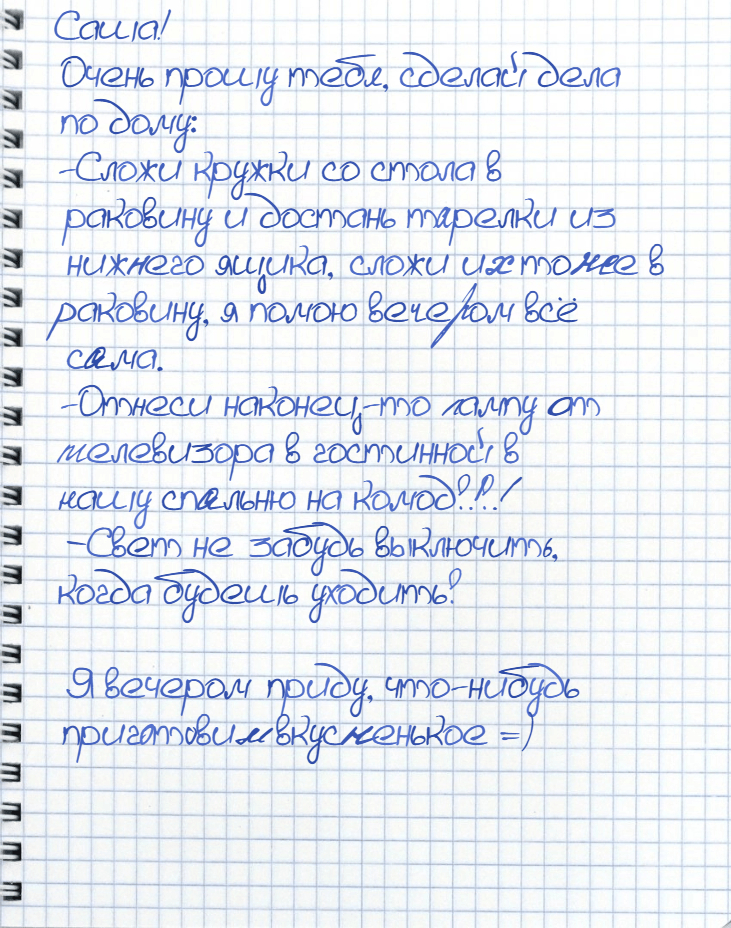 Саша!
Очень прошу тебя, сделай дела
по дому:
-Сложи кружки со стола в
раковину и достань тарелки из
нижнего ящика, сложи их тоже в
раковину, я помою вечером всё
сама.
-Отнеси наконец,-то лампу от
телевизора в гостинной в
нашу спальню на комод?!?!
-Свет не забудь выключить,
когда будешь уходить?
Я вечером приду, что-нибудь
приготовим вкусненькое =)